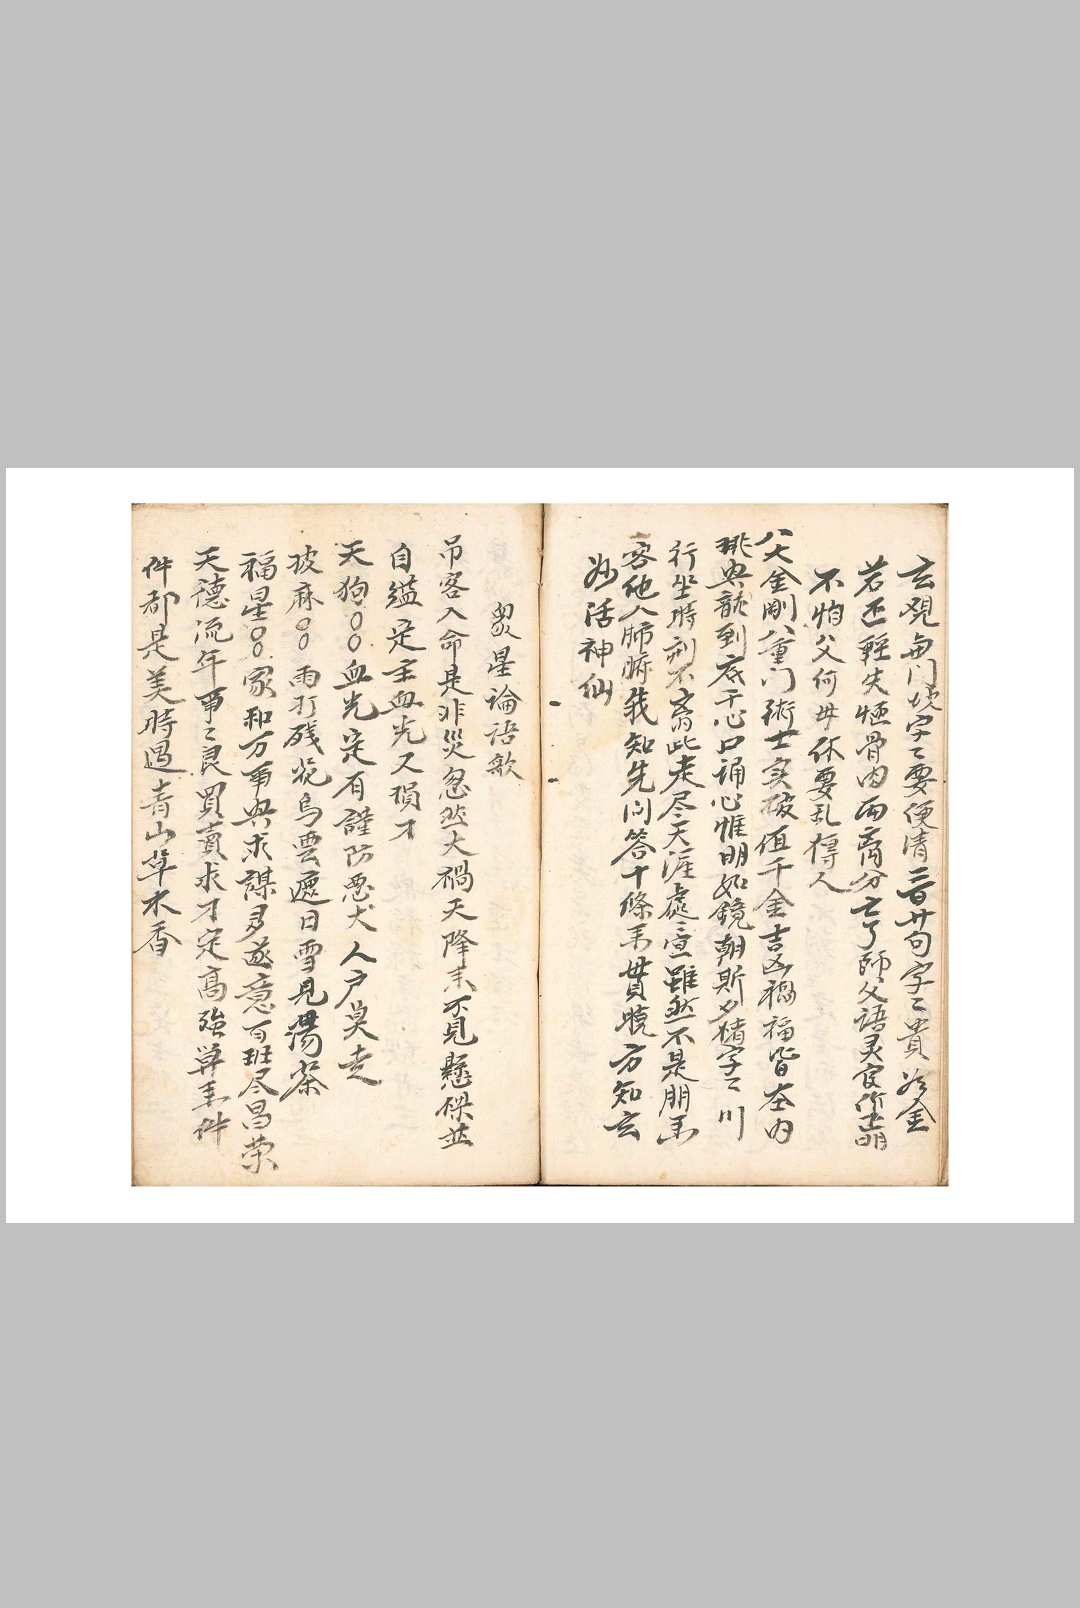 玄覌毎门坟字〻要便清三百廿句字〻貴如金
若还輕失恆骨肉両離分亡了師父語灵官作証明
不怕父何毋休要乱傳人
八大金剛八重门術士実破值千金吉凶禍福皆在内
跳與龍到底于心口誦心惟明如鏡朝斯夕猪字〻川
行坐時刻不离此走尽天涯處〻宣雖然不是朋
客他人肺腑我知先问答十條来貫曉方知玄
妙活神仙
眾星論語歌
吊客入命是非災忽然大禍天降来不見懸樑並
自縊定主血光又損才
天狗〇〇血光定有謹防惡犬人户莫走
披麻〇〇雨打残花烏雲遮日雪見湯茶
福星〇〇家和万事興求謀多遂意百班尽昌荣
天德流年事〻良買賣求才定高強单来件
件都是美時過青山草木香